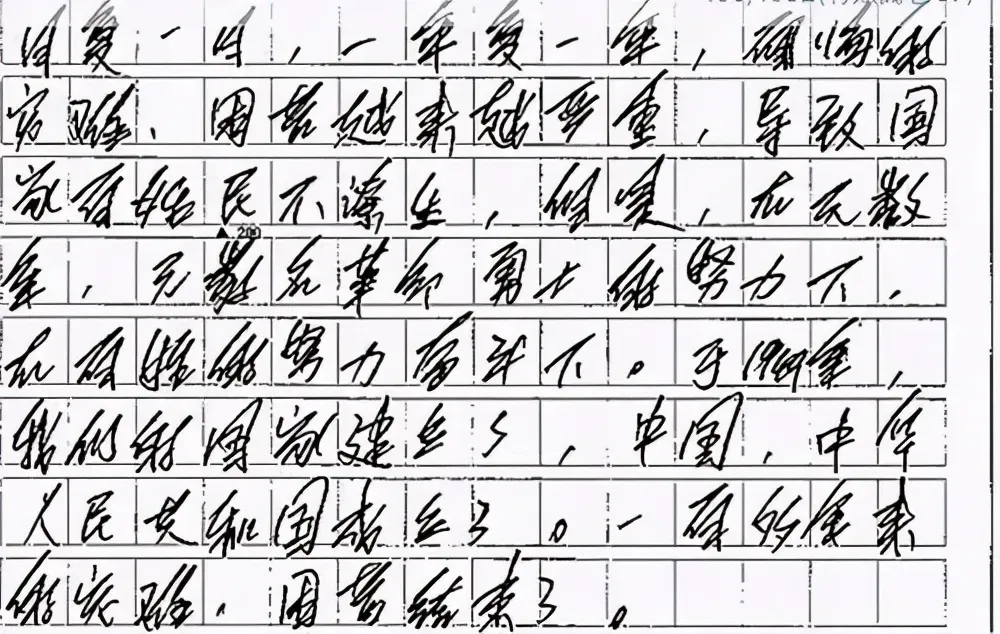 日复一日，一年复一年，百姓的
灾难、困苦越来越严重，导致国
家百姓民不潦生，但是，在无数
年，无数名革命勇士的努力下，
在百姓的努力奋斗下。于1949年，
我们的国家建立了，中国，中华
人民共和国成立了。一百多年来
的灾难，困苦结束了。
200